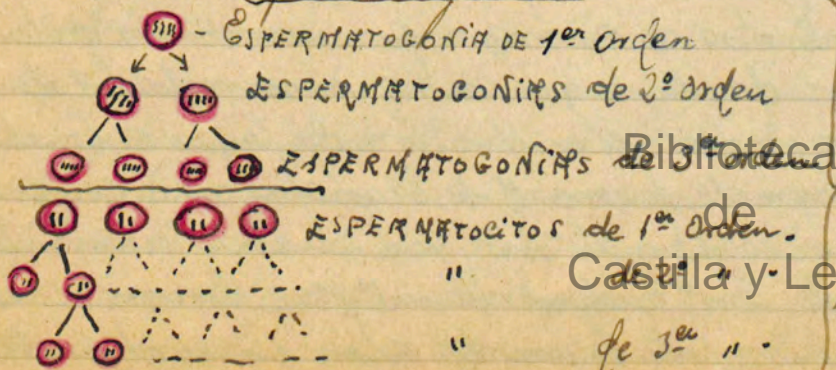 - ESPERMATOGONIA DE 1er orden
ESPERMATOGONIAS de 2º orden
ESPERMATOGONIAS de 3er orden
ESPERMATOCITOS de 1er orden.
" de 2º " .
" de 3er " .
Biblioteca
de
Castilla y Le